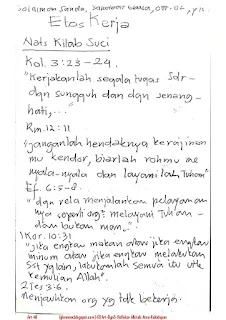 Etos Kerja
Nats Kitab Suci
Kol. 3:23-24.
"Kerjakanlah segala tugas Sdr-
dan sungguh dan dan senang-
hati, ..."
Rm. 12:11
"janganlah hendaknya kerajinan
mu kendor, biarlah rohmu me
nyala-nyala dan layanilah Tuhan"
Ef. 6:5-8.
"dgn rela menjalankan pelayanan
nya seperti org2 melayani Tuhan-
dan bukan man..."
1 Kor. 10:31
"jika engkau makan atau jika engkau
minum atau jika engkau melakukan
Sst yg lain, lakukanlah semua itu utk
kemulian Allah".
2 Tes 3:6.
menjauhkan org yg tdk bekerja.